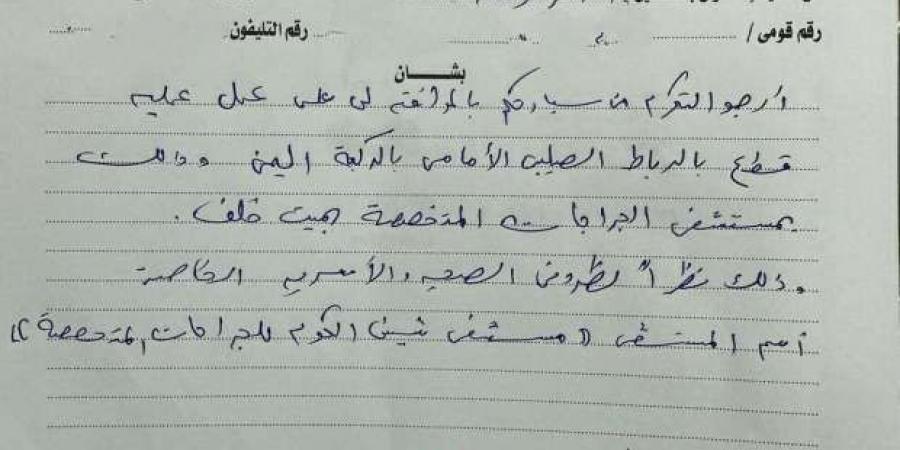 رقم قومى / رقم التليفون
بشــــان
أرجو التكرم من سيادتكم بالموافقة لى على عمل عملية
قطع بالرباط الصليبى الأمامى بالركبة اليمنى وذلك
بمستشفى الجراحات المتخصصة بميت خلف .
وذلك نظراً لظروفى الصحيه والأسريه الخاصة
أسم المستشفى (( مستشفى شبين الكوم للجراحات المتخصصة ))